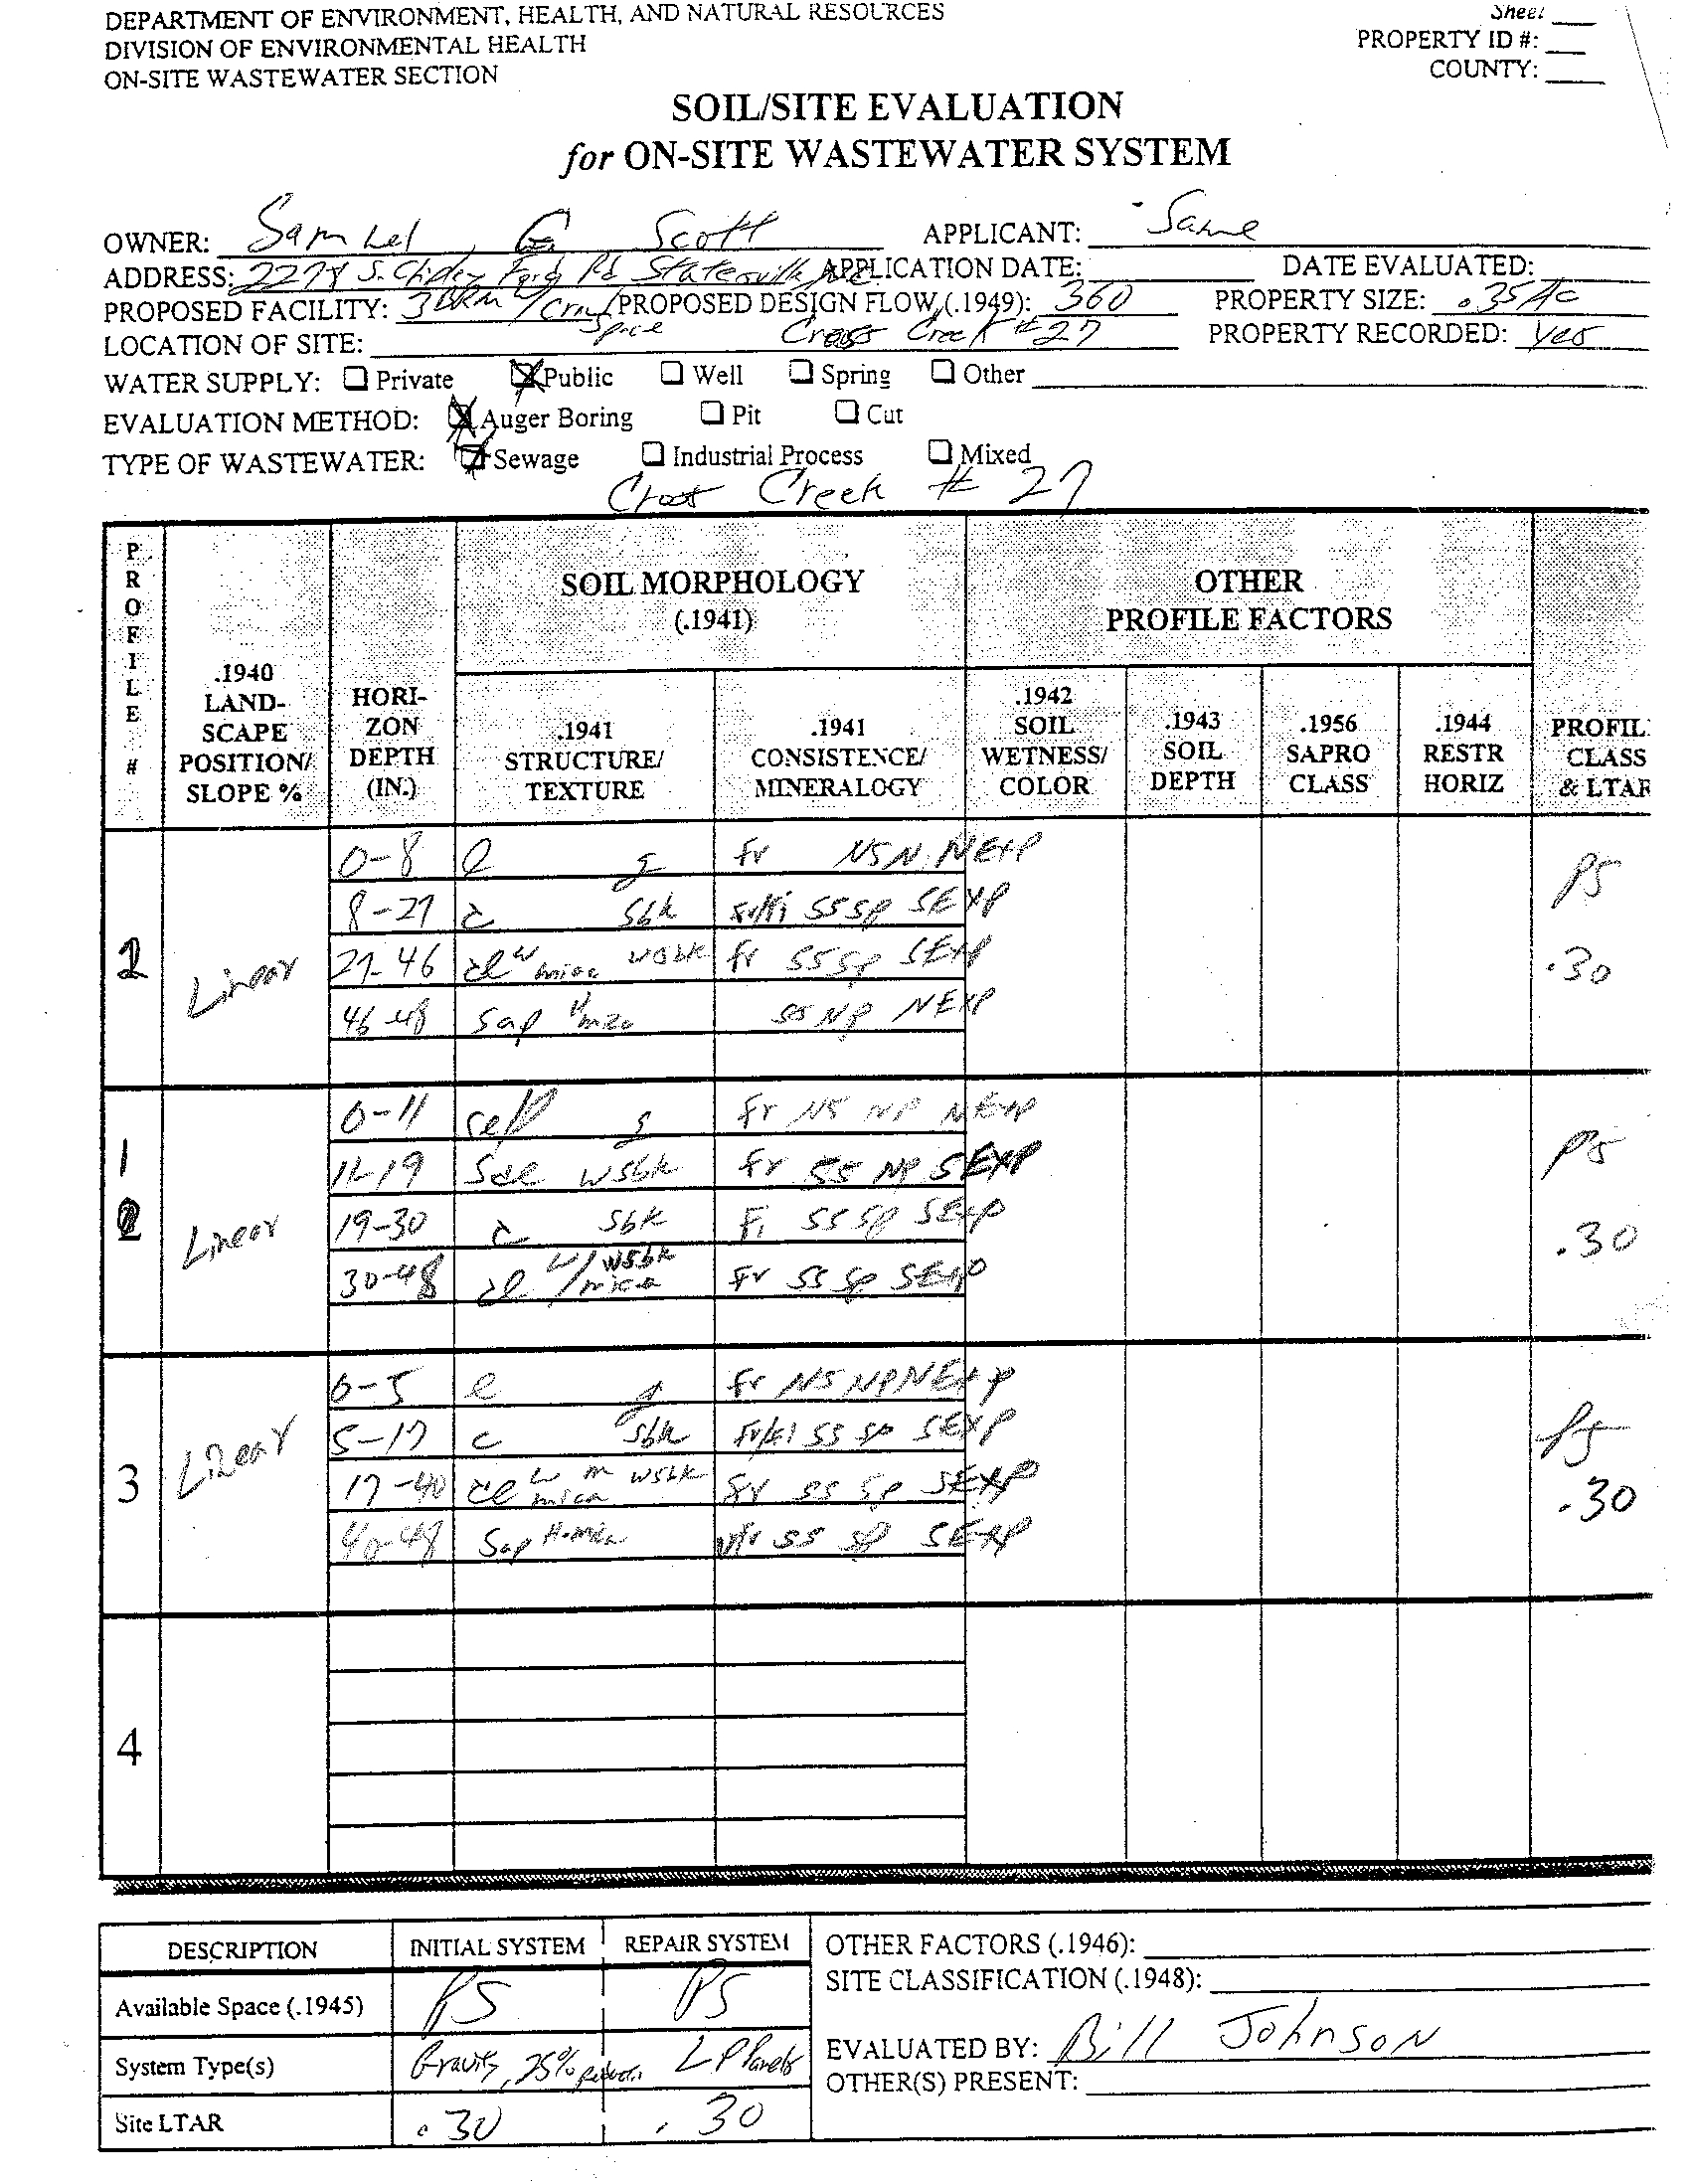 DEPARTMENT OF ENVIRONMENT, HEALTH, AND NATURAL RESOURCES
DIVISION OF ENVIRONMENTAL HEALTH
ON-SITE WASTEWATER SECTION
Sheet
PROPERTY ID #:
COUNTY:
SOIL/SITE EVALUATION
for ON-SITE WASTEWATER SYSTEM
OWNER: Samuel G Scott APPLICANT: Same
ADDRESS: S. Rd Statesville APPLICATION DATE: DATE EVALUATED:
PROPOSED FACILITY: 3 BRM w/ Crawl Space PROPOSED DESIGN FLOW (.1949): 360 PROPERTY SIZE: .35 Ac
LOCATION OF SITE: Cross Creek #27 PROPERTY RECORDED: yes
WATER SUPPLY: Private Public Well Spring Other
EVALUATION METHOD: Auger Boring Pit Cut
TYPE OF WASTEWATER: Sewage Industrial Process Mixed
Cross Creek # 27
PROFILE #
.1940 LAND-SCAPE POSITION/ SLOPE %
HORI-ZON DEPTH (IN.)
SOIL MORPHOLOGY (.1941)
OTHER PROFILE FACTORS
.1941 STRUCTURE/ TEXTURE
.1941 CONSISTENCE/ MINERALOGY
.1942 SOIL WETNESS/ COLOR
.1943 SOIL DEPTH
.1956 SAPRO CLASS
.1944 RESTR HORIZ
PROFIL CLASS & LTAR
2 Linear PS .30
0-8 l g fr NEXP
8-27 c sbk fr/fi SS SP SEXP
27-46 cl w mica wsbk fr SS SP SEXP
46-48 sap mica SS NP NEXP
1 Linear PS .30
0-11 g fr NS NP NEXP
11-19 scl wsbk fr SS NP SEXP
19-30 c sbk Fi SS SP SEXP
30-48 cl w/mica wsbk fr SS SP SEXP
3 Linear PS .30
0-5 l g fr NS NP NEXP
5-17 c sbk fr/fi SS SP SEXP
17-40 cl w mica wsbk fr SS SP SEXP
40-48 Sap SS SP SEXP
4
DESCRIPTION INITIAL SYSTEM REPAIR SYSTEM
Available Space (.1945) PS PS
System Type(s) Gravity, 25% Reduction LP Panels
Site LTAR .30 .30
OTHER FACTORS (.1946):
SITE CLASSIFICATION (.1948):
EVALUATED BY: Bill Johnson
OTHER(S) PRESENT: